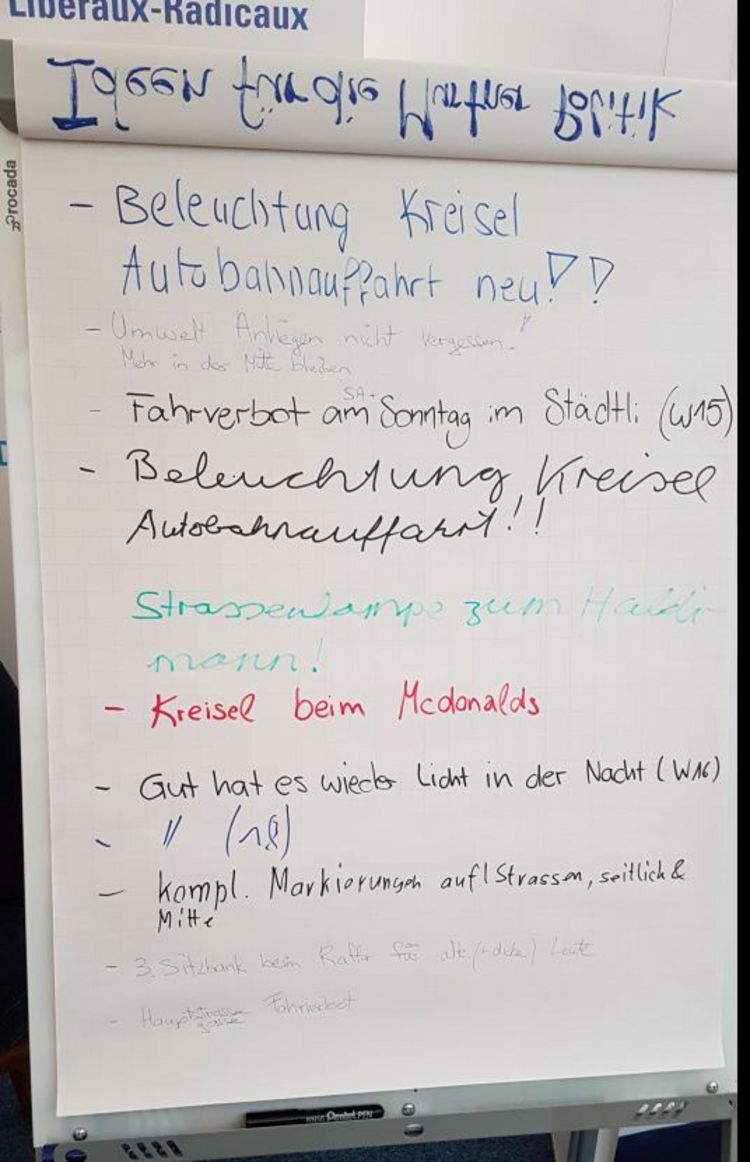 Libéraux-Radicaux
Ideen für die Murtner Politik
Procada
- Beleuchtung Kreisel
Autobahnauffahrt neu!!
- Umwelt Anliegen nicht vergessen!
Mehr in der Mitte bleiben
- Fahrverbot am SA+ Sonntag im Städtli (W15)
- Beleuchtung Kreisel
Autobahnauffahrt!!
Strassenlampe zum Haldi-
mann!
- Kreisel beim Mcdonalds
- Gut hat es wieder Licht in der Nacht (W16)
- " 
- kompl. Markierungen auf Strassen, seitlich &
Mitte
- 3. Sitzbank beim für alte (+ dicke) Leute
- Hauptgasse Fahrverbot
Pentel PEN